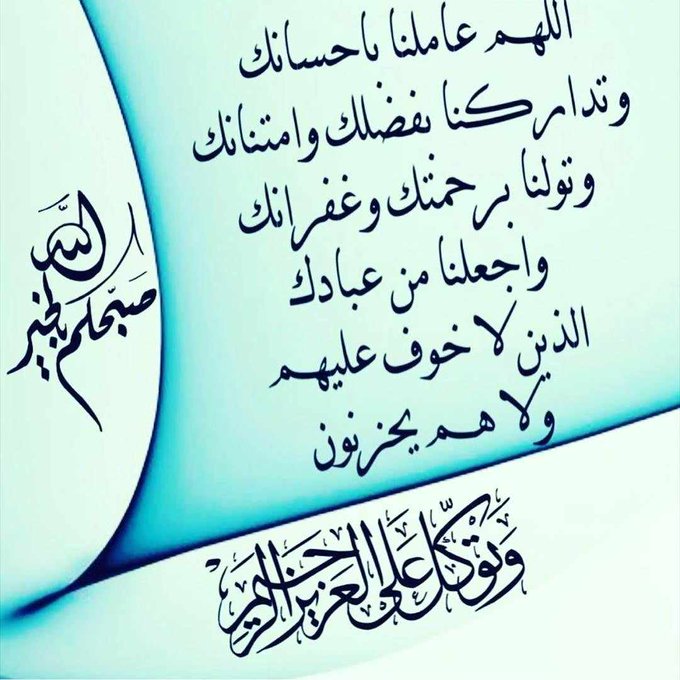 اللهم عاملنا باحسانك
وتداركنا بفضلك وامتنانك
وتولنا برحمتك وغفرانك
واجعلنا من عبادك
الذين لا خوف عليهم
ولا هم يحزنون
صبحكم الله بالخير
وَتَوَكَّلْ عَلَى العَزِيزِ الرَّحِيمِ